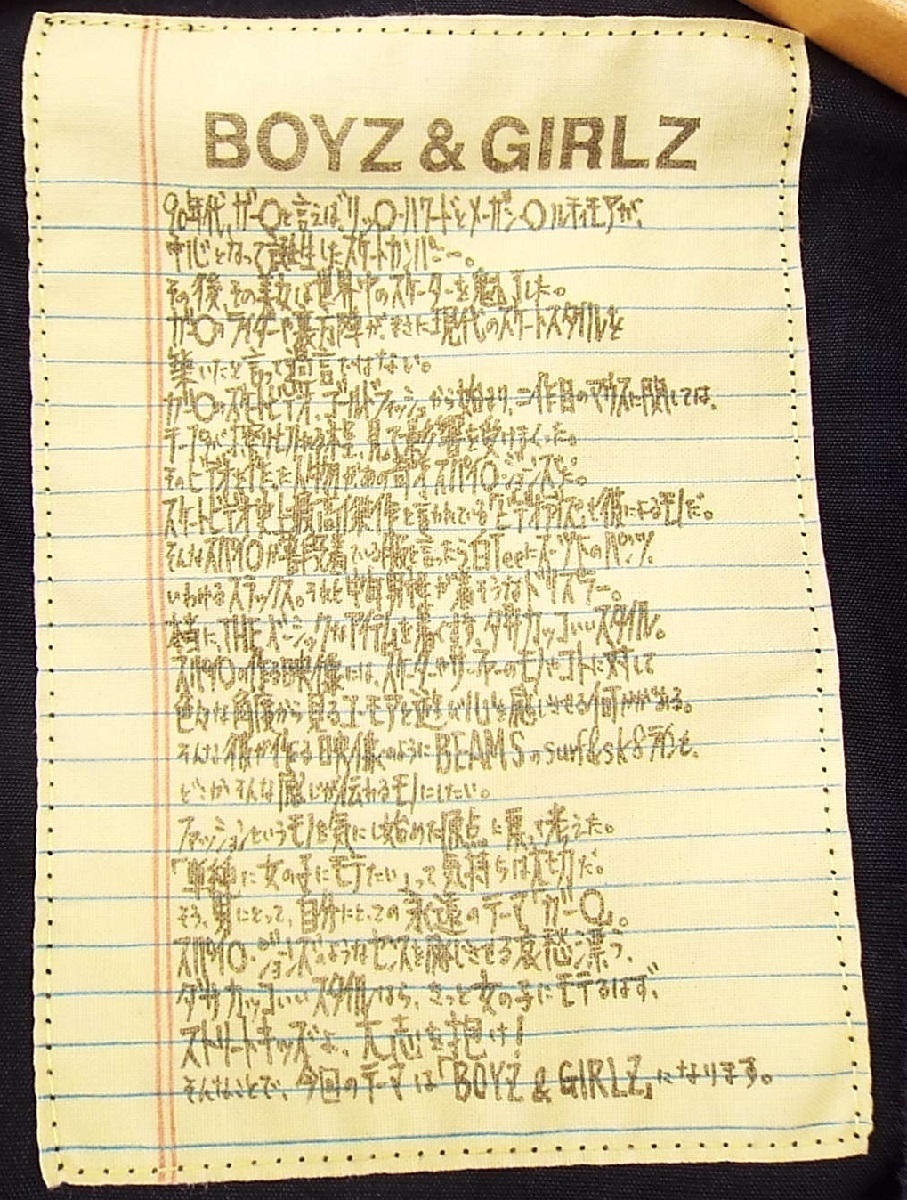 BOYZ & GIRLZ
90年代、ガー〇と言えば、リッ〇・ハワードとメーガン・〇ルティモアが、
中心となって誕生したスケートカンパニー。
その後、その美女は世界中のスケーターを魅了した。
ガー〇のライダーや裏方陣が、まさに現代のスケートスタイルを
築いたと言って過言ではない。
ガー〇のスケートビデオ、ゴールドフィッシュから始まり、二作目のマウスに関しては、
テープが擦り切れる程、見て影響を受けまくった。
そのビデオを作った人物があの奇才スパイ〇・ジョーンズだ。
スケートビデオ史上最高傑作と言われている「ビデオデイズ」も彼によるモノだ。
そんなスパイ〇が普段着ている服と言ったら白Teeにスーツのパンツ、
いわゆるスラックス。それと中年男性が着そうなドリズラー。
本当に、THEベーシックなアイテムを着くずす、ダサカッコいいスタイル。
スパイ〇の作る映像には、スケーターやサーファーのモノやコトに対して
色々な角度から見るユーモアと遊び心を感じさせる何かがある。
そんな彼が作る映像のように BEAMSのsurf&sk8ラインも、
どこかそんな感じが伝わるモノにしたい。
ファッションというモノを気にし始めた原点に戻って考えた。
「単純に女の子にモテたい」って気持ちは大切だ。
そう、男にとって、自分にとっての永遠のテーマ「ガー〇」。
スパイ〇・ジョーンズのようなセンスを感じさせる哀愁漂う、
ダサカッコいいスタイルなら、きっと女の子にモテるはず、
ストリートキッズよ、大志を抱け!
そんなことで、今回のテーマは「BOYZ & GIRLZ」になります。